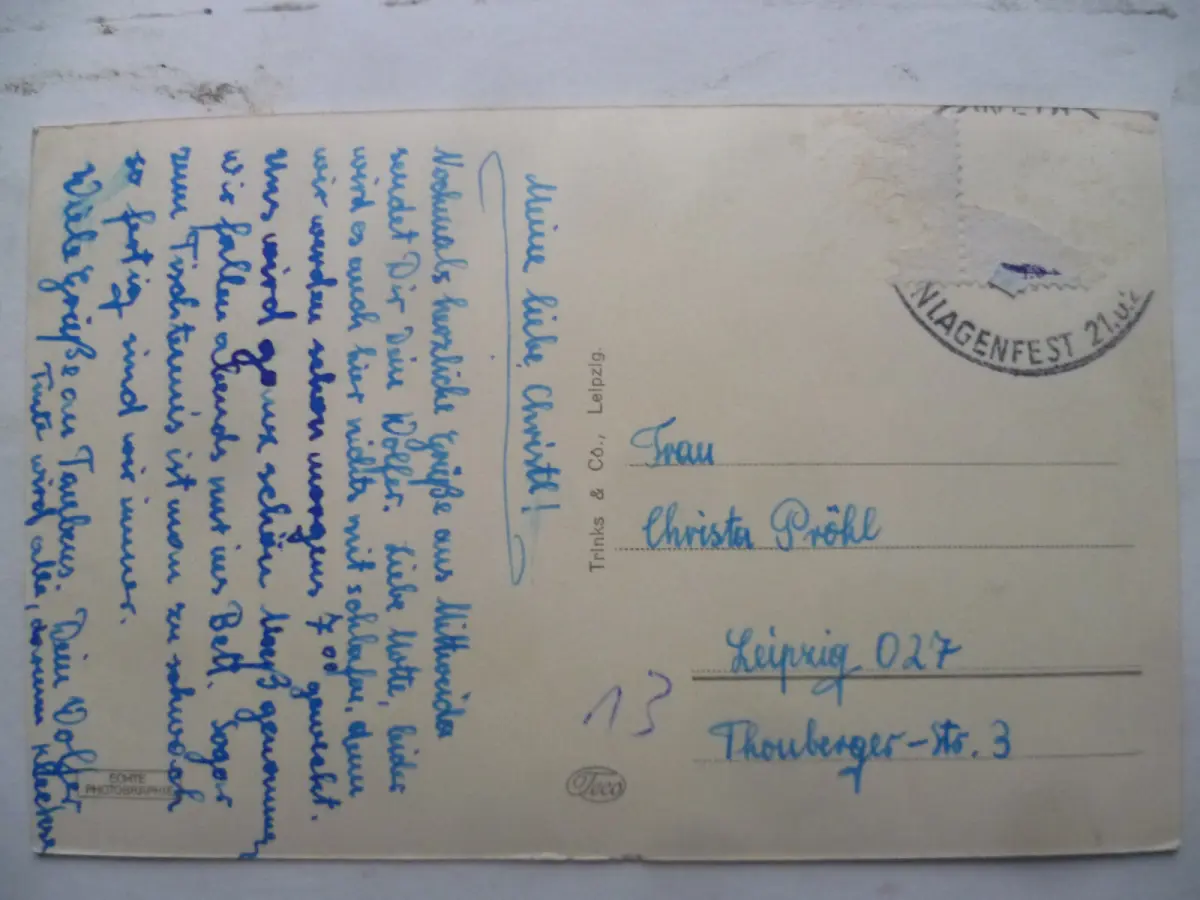 Meine liebe Christl!
Nochmals herzliche Grüße aus Mittweida
sendet Dir Dein Wolfer. Liebe Motte, leider
wird es auch hier nichts mit schlafen, denn
wir werden schon morgens 7 00 geweckt.
Uns wird ganz schön Maß genommen,
wir fallen abends nur ins Bett. Sogar
zum Tischtennis ist man zu schwach
so fertig sind wir immer.
Viele Grüße an Taubers. Dein Wolfer
Tinte wird alle, darum Kleckse
ECHTE
PHOTOGRAPHIE
Trinks & Co., Leipzig.
Teco
NLAGENFEST 21.u.
Frau
Christa Pröhl
Leipzig O27
Thonberger-Str. 3
13